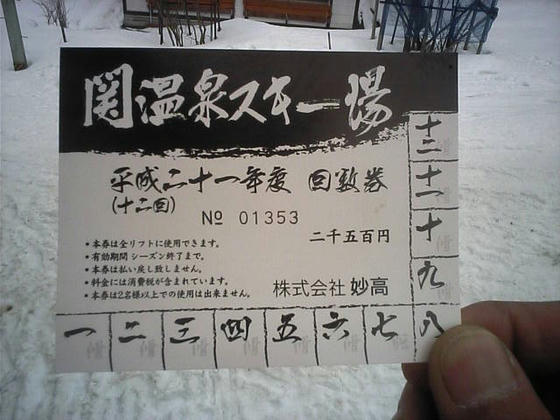 関温泉スキー場
平成二十一年度 回数券
(十二回)
№ 01353
二千五百円
・本券は全リフトに使用できます。
・有効期間 シーズン終了まで。
・本券は払い戻し致しません。
・料金には消費税が含まれています。
・本券は2名様以上での使用は出来ません。
株式会社 妙高
一 二 三 四 五 六 七 八
九
十
十一
十二